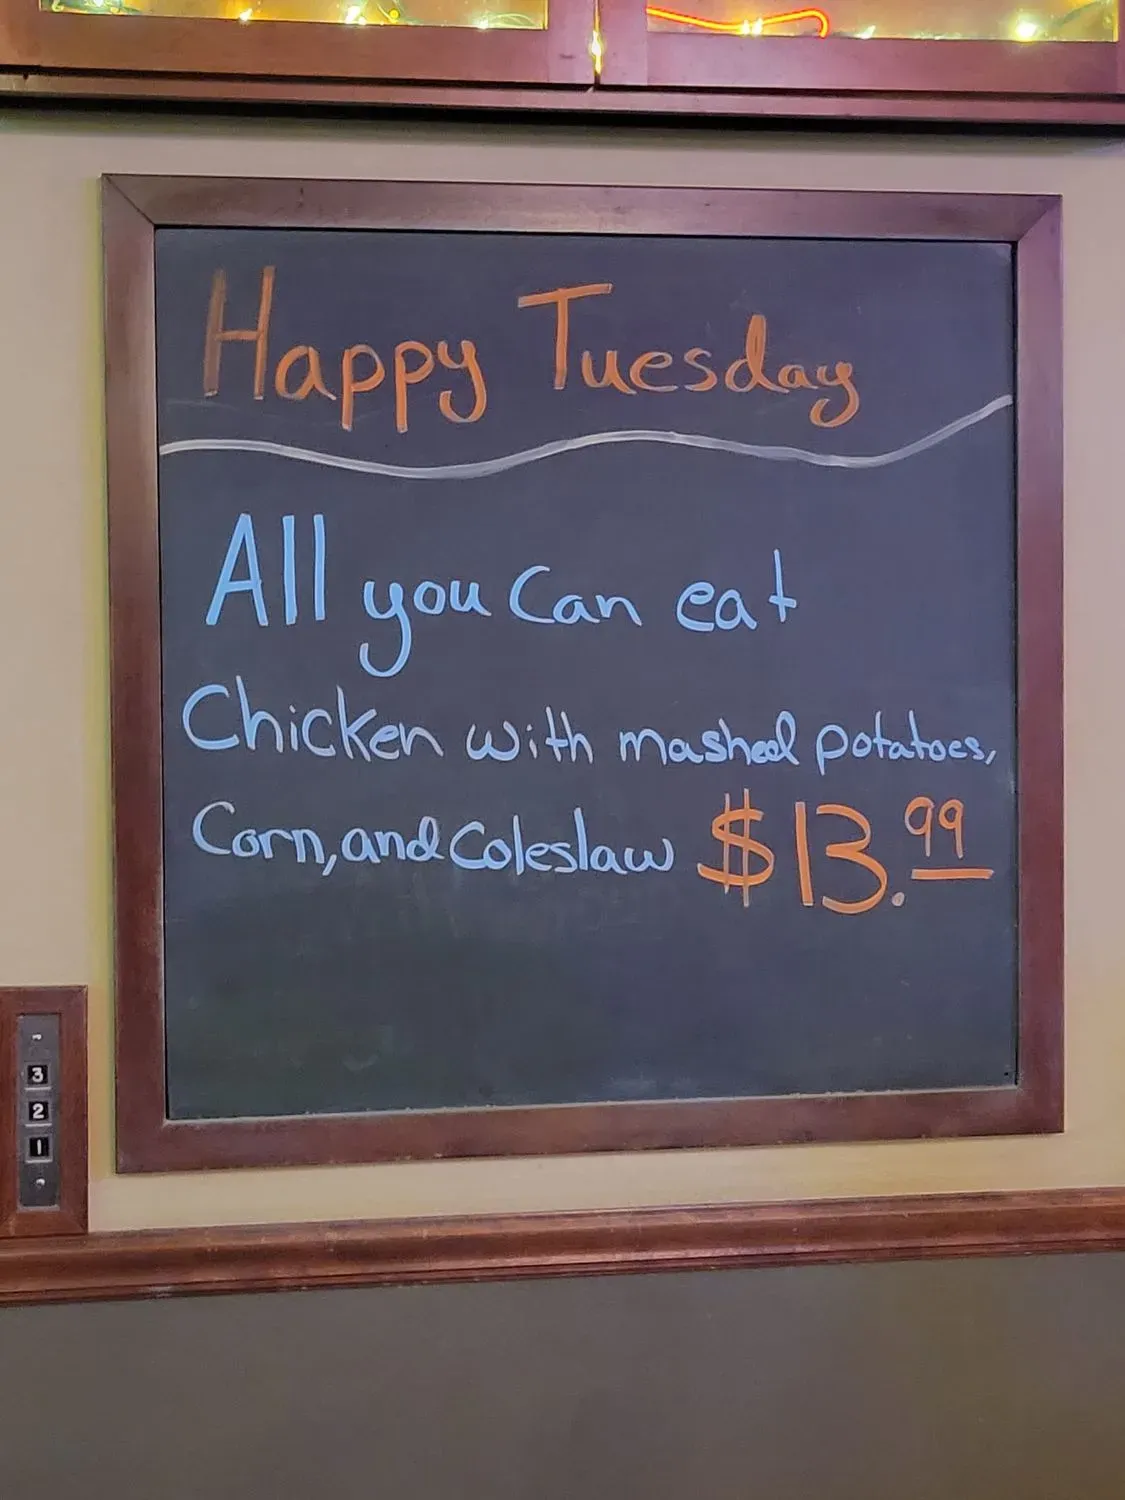 Happy Tuesday
All you Can eat
Chicken with mashed potatoes,
Corn, and Coleslaw $13.99
3
2
1